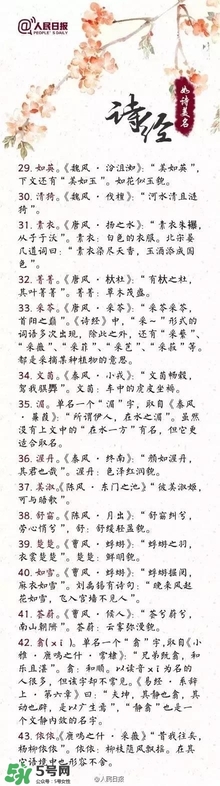 @人民日报
PEOPLE'S DAILY
如诗美名
诗经
29. 如英。《魏风·汾沮洳》:“美如英”,
下文还有“美如玉”。如花似玉貌。
30. 清猗。《魏风·伐檀》:“河水清且涟
猗”。
31. 素衣。《唐风·扬之水》:“素衣朱襮,
从子于沃”。素衣:白色的衣服。北宋晏
几道词曰:“素衣染尽天香,玉酒添成国
色”。
32. 菁菁。《唐风·杕杜》:“有杕之杜,
其叶菁菁”。菁菁:草木茂盛。
33. 采苓。《唐风·采苓》:“采苓采苓,
首阳之巅”。《诗经》中,“采~”形式的
词语多次出现,除此之外,还有“采蘩”、
“采薇”、“采菲”、“采艺”、“采菽”等。
都是采摘某种植物的意思。
34. 文茵。《秦风·小戎》:“文茵畅毂,
驾我骐馵”。文茵:车中的虎皮坐褥。
35. 湄。单名一个“湄”字,取自《秦风
·蒹葭》:“所谓伊人,在水之湄”。虽然
没有上文中的“在水一方”有名,但它更
适合取名。
36. 渥丹。《秦风·终南》:“颜如渥丹,
其君也哉”。渥丹:色泽红润貌。
37. 美淑。《陈风·东门之池》:“彼美淑姬,
可与晤歌”。
38. 舒窈。《陈风·月出》:“舒窈纠兮,
劳心悄兮”,舒:舒缓轻盈貌。
39. 楚楚。《曹风·蜉蝣》:“蜉蝣之羽,
衣裳楚楚”。楚楚:鲜明貌。
40. 如雪。《曹风·蜉蝣》:“蜉蝣掘阅,
麻衣如雪”。刘禹锡有诗句:“晚来风起
花如雪,飞入宫墙不见人”。
41. 荟蔚。《曹风·候人》:“荟兮蔚兮,
南山朝隮”。荟蔚:云雾弥漫貌。
42. 翕(xi)。单名一个“翕”字,取自《小
雅·鹿鸣之什·常棣》:“兄弟既翕,和
乐且湛”。翕:和顺。以读音xi为名的
人很多,但该字却不常见。《易经·系辞
上·第六章》曰:“夫坤,其静也翕,其
动也辟,是以广生焉”,“静翕”也是一
个文静内敛的名字。
43. 依依。《鹿鸣之什·采薇》“昔我往矣,
杨柳依依”。依依:柳枝随风飘拂。在其
它语境中也形容不舍。
5号网
@人民日报